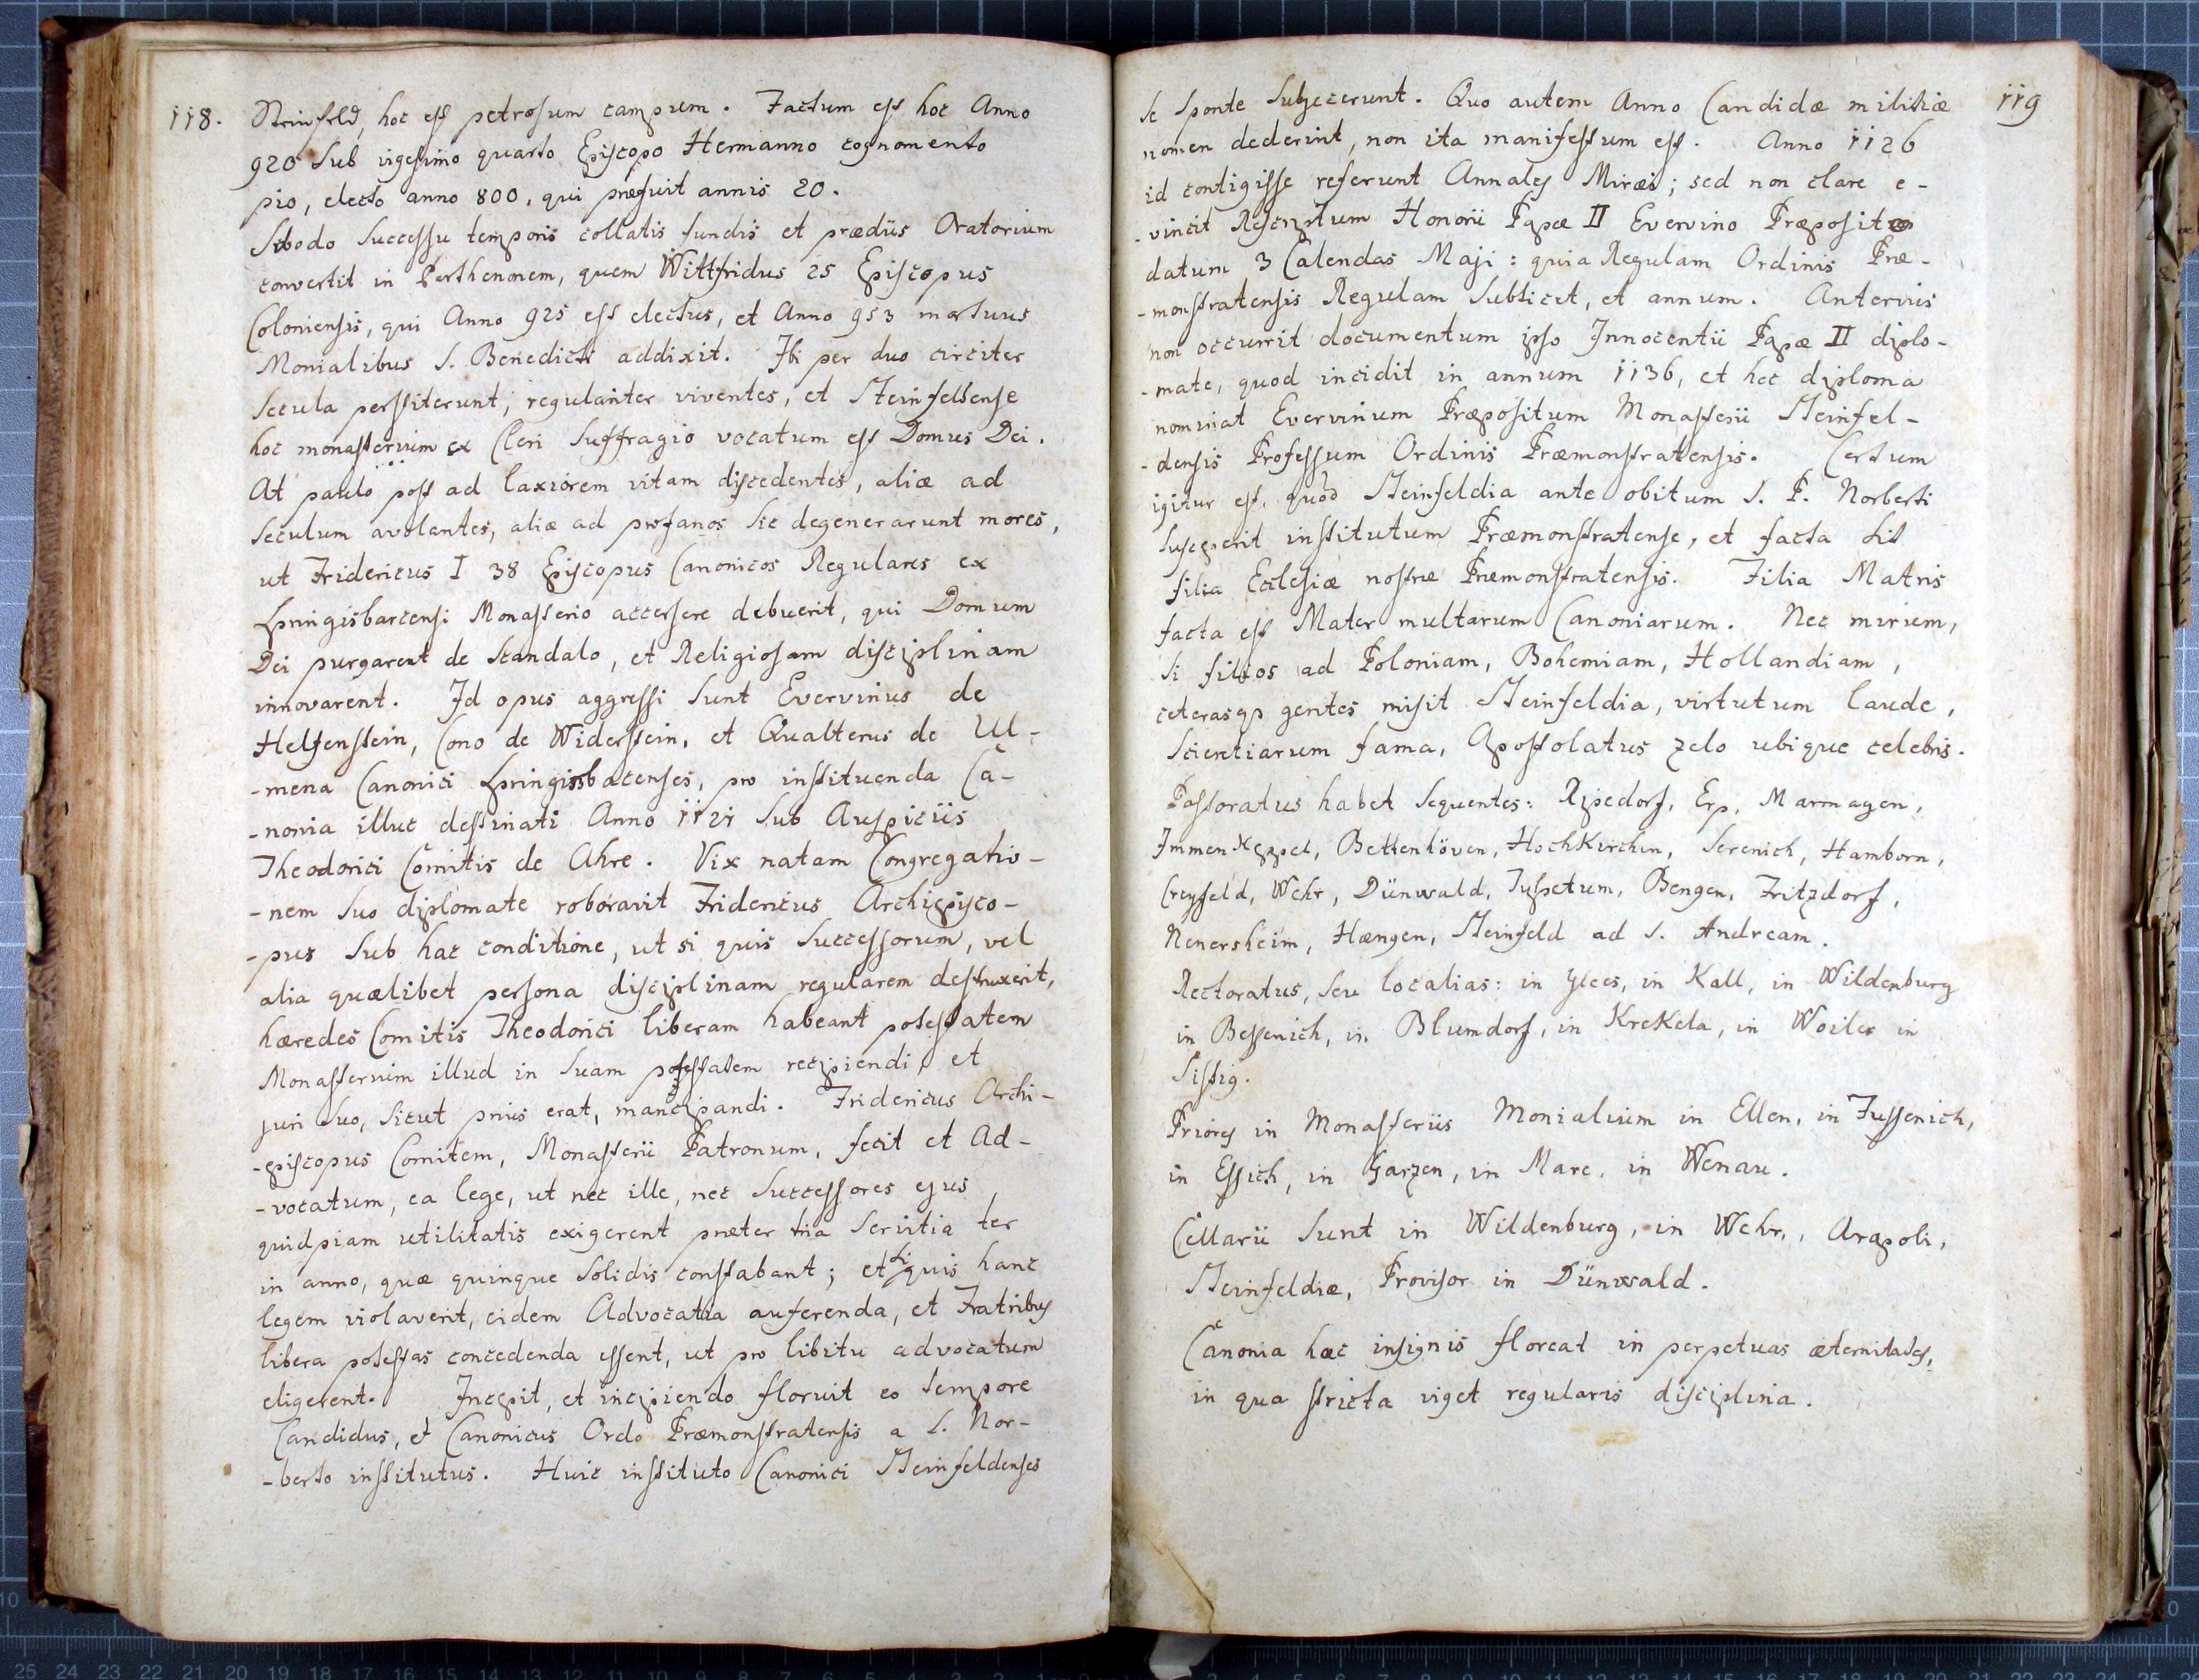 118.
Steinfeld, hoc est petrosum campum. Factum est hoc Anno
920 sub vigesimo quarto Episcopo Hermanno cognomento
pio, electo anno 800, qui præfuit annis 20.
Sibodo successu temporis collatis fundis et prædiis Oratorium
convertit in Parthenonem, quem Wittfridus 25 Episcopus
Coloniensis, qui Anno 925 est electus, et Anno 953 mortuus
Monialibus S. Benedicti addixit. Ibi per duo circiter
secula perstiterunt, regulariter viventes, et Steinfeldense
hoc monasterium ex Cleri suffragio vocatum est Domus Dei.
At paulo post ad laxiorem vitam discedentes, aliæ ad
seculum avolantes, aliæ ad profanos sic degenerarunt mores,
ut Fridericus I 38 Episcopus Canonicos Regulares ex
Springisbarcensi Monasterio accersere debuerit, qui Domum
Dei purgarent de scandalo, et Religiosam disciplinam
innovarent. Id opus aggressi sunt Evervinus de
Helfenstein, Cono de Widerstein, et Qualterus de Ul-
-mena Canonici Springissbacenses, pro instituenda Ca-
-nonia illuc destinati Anno 1121 sub Auspiciis
Theodorici Comitis de Ahre. Vix natam Congregatio-
-nem suo diplomate roboravit Fridericus Archiepisco-
-pus sub hac conditione, ut si quis successorum, vel
alia quælibet persona disciplinam regularem destruxerit,
hæredes Comitis Theodorici liberam habeant potestatem
Monasterium illud in suam potestatem recipiendi, et
juri suo, sicut prius erat, mancipandi. Fridericus Archi-
-episcopus Comitem, Monasterii Patronum, fecit et Ad-
-vocatum, ea lege, ut nec ille, nec successores ejus
quidpiam utilitatis exigerent præter tria servitia ter
in anno, quæ quinque solidis constabant; et si quis hanc
legem violaverit, eidem Advocatia auferenda, et Fratribus
libera potestas concedenda essent, ut pro libitu advocatum
eligerent. Incepit, et incipiendo floruit eo tempore
Candidus, et Canonicus Ordo Præmonstratensis a S. Nor-
-berto institutus. Huic instituto Canonici Steinfeldenses
119
se sponte subjecerunt. Quo autem Anno Candidæ militiæ
nomen dederint, non ita manifestum est. Anno 1126
id contigisse referunt Annales Miræi; sed non clare e-
-vincit Rescriptum Honorii Papæ II Evervino Præposito
datum 3 Calendas Maji: quia Regulam Ordinis Præ-
-monstratensis Regulam subticet, et annum. Anterius
non occurrit documentum ipso Innocentii Papæ II diplo-
-mate, quod incidit in annum 1136, et hoc diploma
nominat Evervinum Præpositum Monasterii Steinfel-
-densis Professum Ordinis Præmonstratensis. Certum
igitur est, quod Steinfeldia ante obitum S. P. Norberti
susceperit institutum Præmonstratense, et facta sit
filia Ecclesiæ nostræ Præmonstratensis. Filia Matris
facta est Mater multarum Canoniarum. Nec mirum,
si filios ad Poloniam, Bohemiam, Hollandiam,
ceterasque gentes misit Steinfeldia, virtutum laude,
scientiarum fama, Apostolatus zelo ubique celebris.
Pastoratus habet sequentes: Ripsdorf, Erp, Marmagen,
ImmenKeppel, Bettenhöven, HochKirchen, Serenich, Hamborn,
Creyfeld, Wehr, Dünwald, Tuspetum, Bengen, Fritzdorf,
Nenersheim, Hængen, Steinfeld ad S. Andream.
Rectoratus, seu localias: in ylees, in Kall, in Wildenburg
in Bessenich, in Blumdorf, in KreKela, in Woiler in
Sistig.
Priores in Monasteriis Monialium in Ellen, in Fussenich,
in Essich, in Garzen, in Mare, in Wenau.
Cellarii sunt in Wildenburg, in Wehr, Arapoli,
Steinfeldiæ, Provisor in Dünwald.
Canonia hæc insignis floreat in perpetuas æternitates,
in qua stricta viget regularis disciplina.